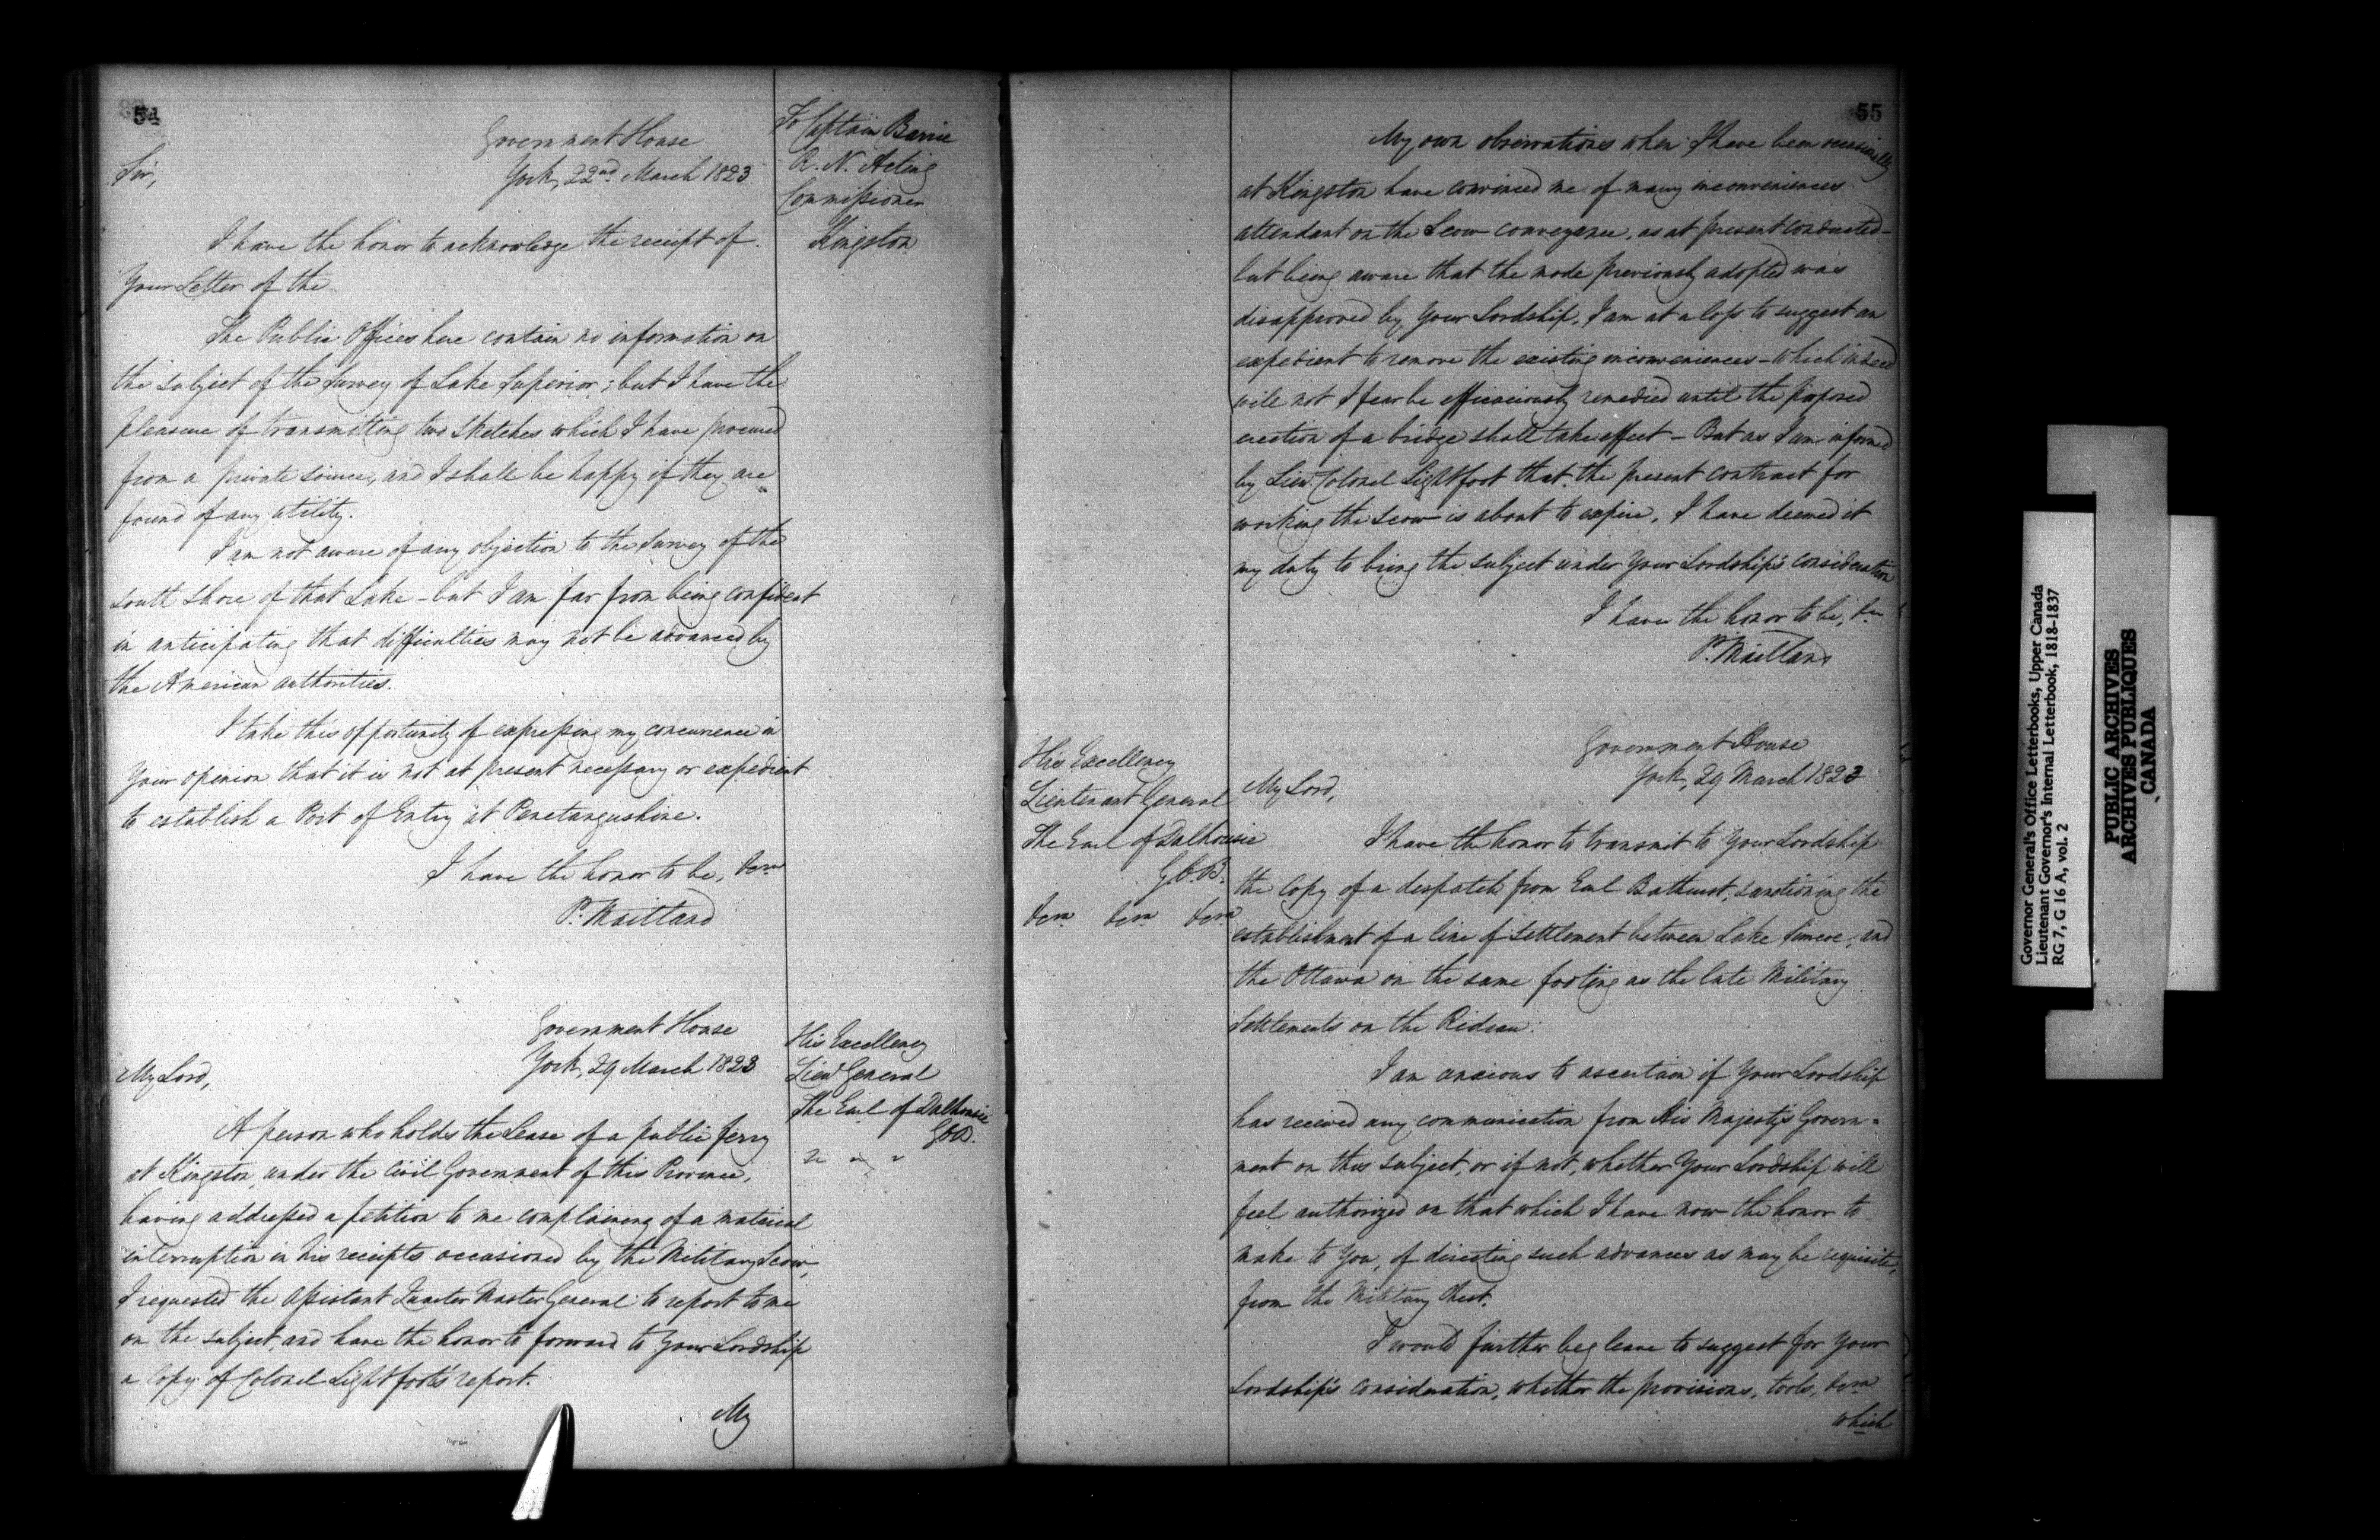 54
To Captain Barrie
R. N. Acting
Commissioner
Kingston
Government House
York, 22nd March 1823
Sir,
I have the honor to acknowledge the receipt of
Your Letter of the
The Public Offices here contain no information on
the subject of the Survey of Lake Superior; but I have the
pleasure of transmitting two Sketches which I have procured
from a private source, and I shall be happy if they are
found of any utility.
I am not aware of any objection to the Survey of the
south shore of that Lake - but I am far from being confident
in anticipating that difficulties may not be advanced by
the American authorities.
I take this opportunity of expressing my concurrence in
Your opinion that it is not at present necessary or expedient
to establish a Port of Entry at Penetangushine.
I have the honor to be, &ca
P. Maitland
His Excellency
Lieut General
The Earl of Dalhousie
GCB.
Government House
York, 29 March 1823
My Lord,
A person who holds the Lease of a public ferry
at Kingston, under the Civil Government of this Province,
having addressed a petition to me complaining of a material
interruption in his receipts occasioned by the Military Scow,
I requested the Assistant Quarter Master General to report to me
on the subject, and have the honor to forward to Your Lordship
a Copy of Colonel Lightfoot's report.
My
55
My own observations when I have been occasionally
at Kingston have convinced me of many inconveniences
attendant on the Scow conveyance, as at present conducted -
but being aware that the mode previously adopted was
disapproved by Your Lordship, I am at a loss to suggest an
expedient to remove the existing inconveniences - which indeed
will not I fear be efficaciously remedied until the proposed
erection of a bridge shall take effect - But as I am informed
by Lieut Colonel Lightfoot that the present contract for
working the Scow is about to expire, I have deemed it
my duty to bring the subject under Your Lordship's consideration
I have the honor to be, &ca
P. Maitland
His Excellency
Lieutenant General
The Earl of Dalhousie
G.C.B.
&ca &ca &ca
Government House
York, 29 March 1823
My Lord,
I have the honor to transmit to Your Lordship
the Copy of a despatch from Earl Bathurst, sanctioning the
establishment of a line of Settlement between Lake Simcoe, and
the Ottawa on the same footing as the late Military
Settlements on the Rideau.
I am anxious to ascertain if Your Lordship
has received any communication from His Majesty's Govern=
ment on this subject, or if not, whether Your Lordship will
feel authorized on that which I have now the honor to
make to You, of directing such advances as may be requisite,
from the Military Chest.
I would further beg leave to suggest for Your
Lordship's consideration, whether the provisions, tools, &ca
which
Governor General's Office Letterbooks, Upper Canada
Lieutenant Governor's Internal Letterbook, 1818-1837
RG 7, G 16 A, vol. 2
PUBLIC ARCHIVES
ARCHIVES PUBLIQUES
CANADA